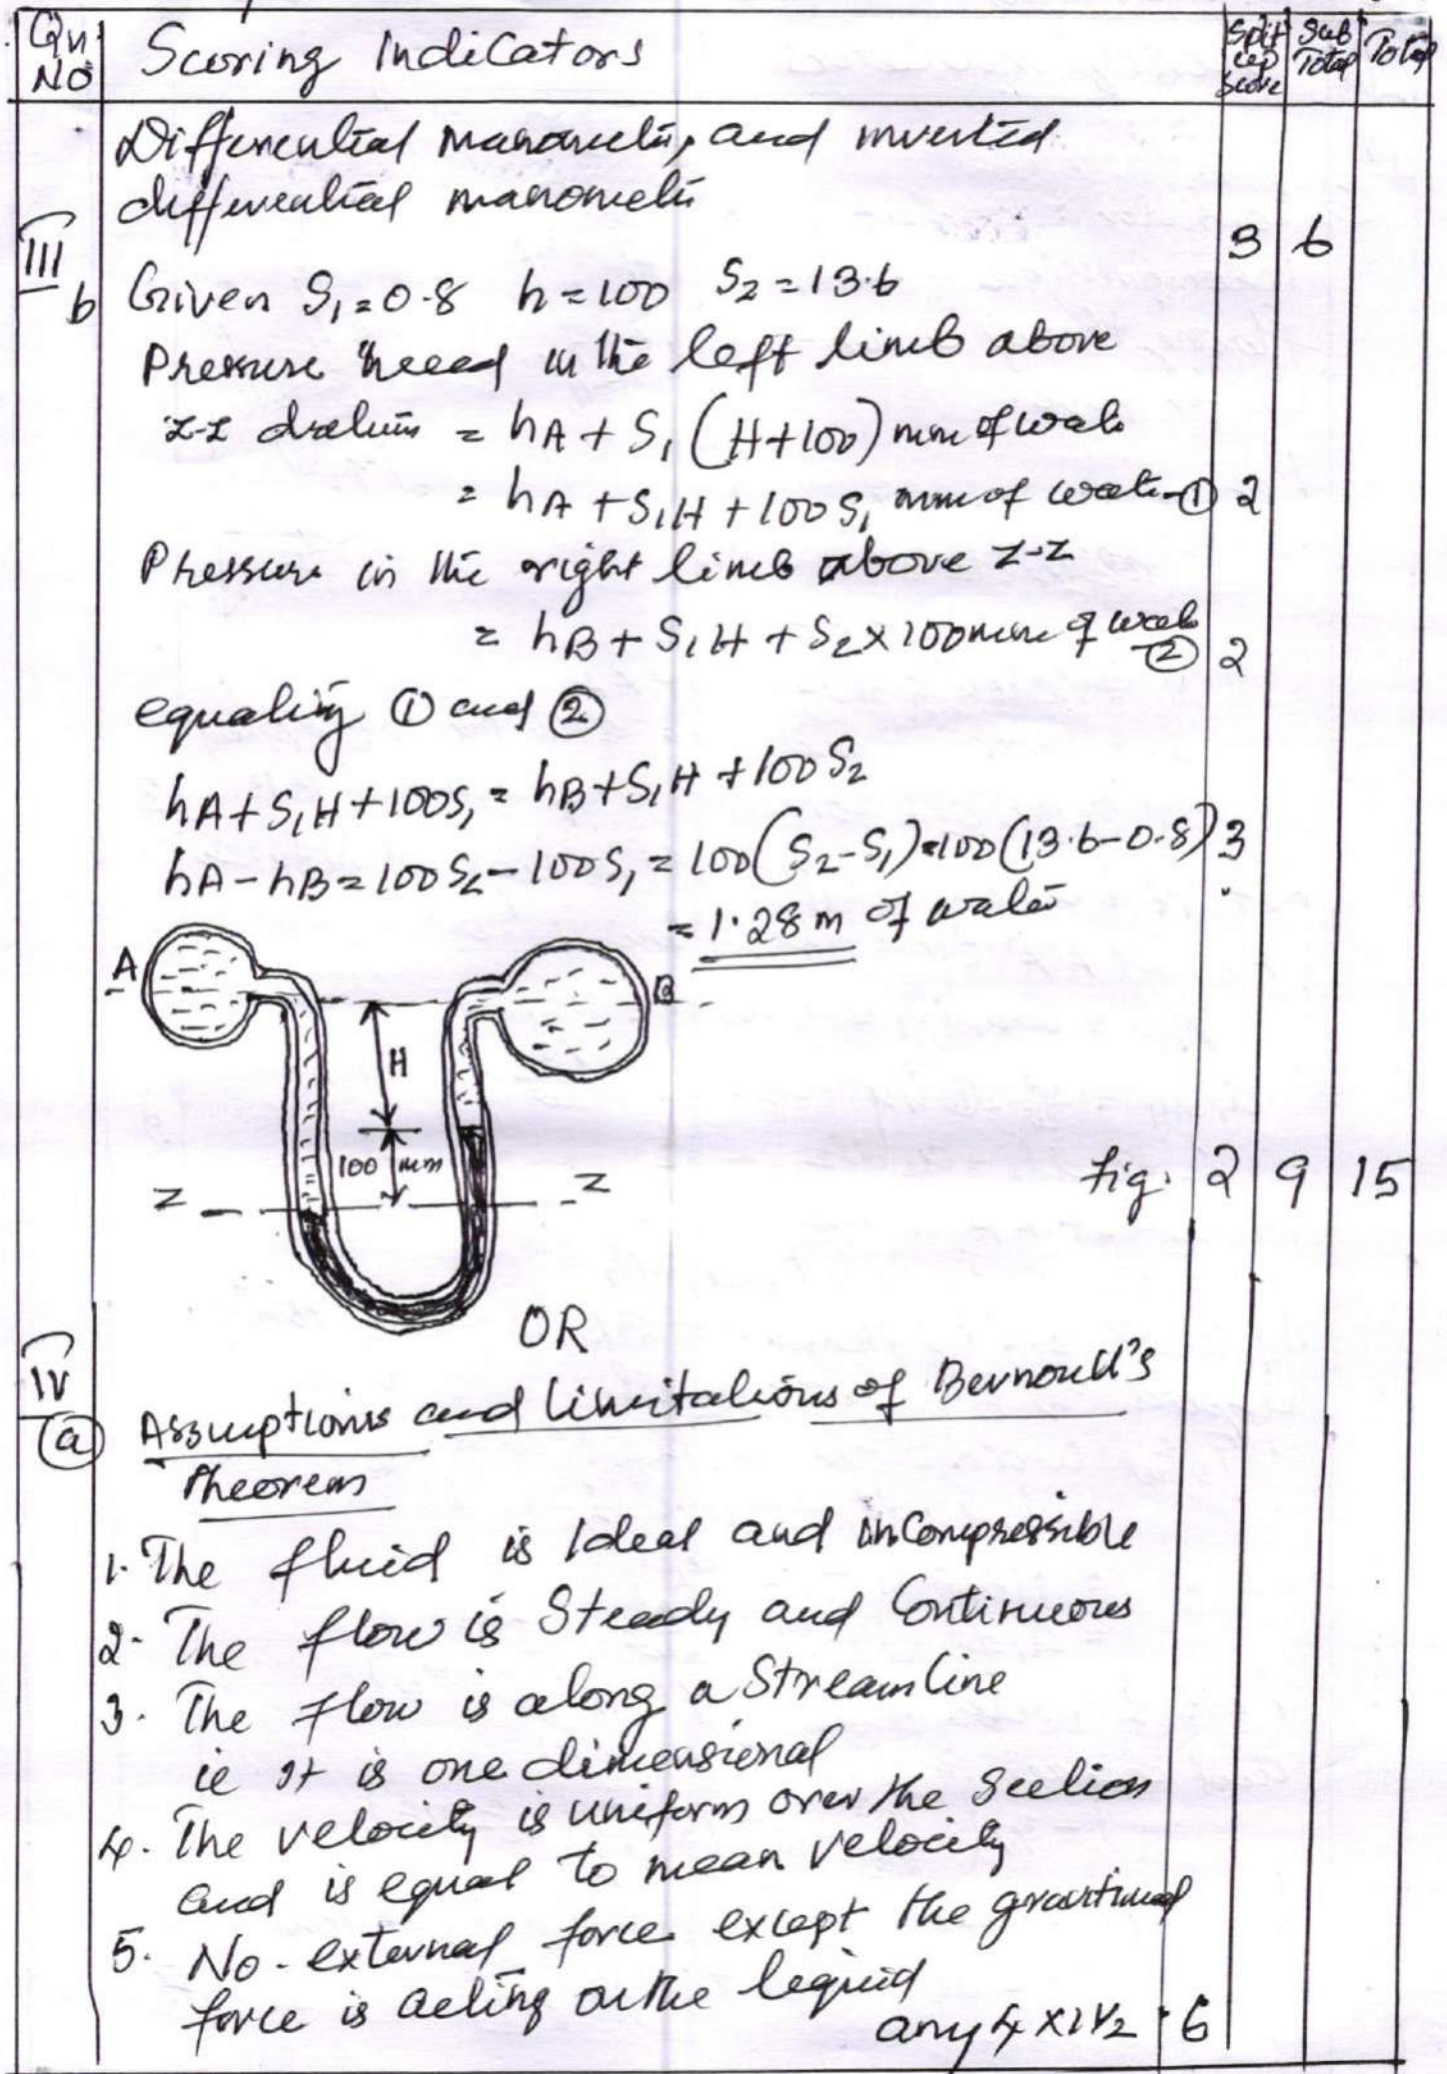 Qn. NO Scoring Indicators Split up score Sub Total Total
Differential manometer, and inverted
differential manometer
3 6
III b Given S₁=0.8 h=100 S₂=13.6
Pressure head in the left limb above
Z-Z datum = hA + S₁(H+100) mm of water
= hA + S₁H + 100S₁ mm of water-① 2
Pressure in the right limb above Z-Z
= hB + S₁H + S₂×100mm of water
② 2
equaling ① and ②
hA+S₁H+100S₁ = hB+S₁H+100S₂
hA-hB=100S₂-100S₁=100(S₂-S₁)=100(13.6-0.8) 3
= 1.28m of water
A B
H
100 mm
Z Z
fig. 2 9 15
OR
IV
(a) Assumptions and limitations of Bernoull's
Theorem
1. The fluid is Ideal and incompressible
2. The flow is Steady and Continuous
3. The flow is along a Streamline
ie it is one dimensional
4. The velocity is uniform over the Section
and is equal to mean velocity
5. No. external force except the
force is acting on the liquid
any 4 x 1½ 6